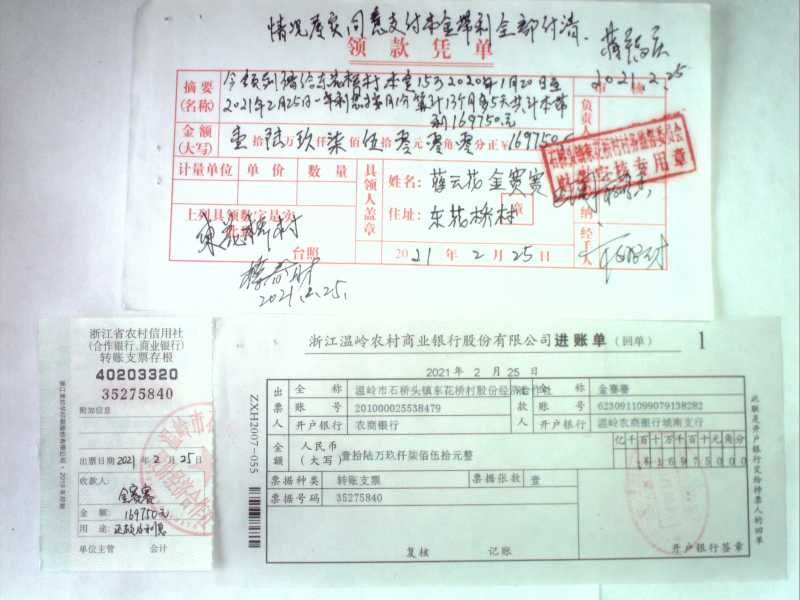 情况属实同意支付本金帮利全部付清
2021.2.25
领款凭单
摘要
(名称)
今领到
东花桥村本金15万2020年1月20日至
2021年2月25日一年利息
13个月
5天共计本
利169750.元
负责人
金额
(大写)
壹拾陆万玖仟柒佰伍拾零元零角零分正¥169750.
计量单位
单价
数量
具领人盖章
姓名:薛云花 金赛赛
住址:东花桥村
章
石桥头镇东花桥村村务监督委员会
专用章
上列具领数字是实
东花桥村
台照
2021年2月25日
经手人
2021.2.25.
浙江省农村信用社
(合作银行、商业银行)
转账支票存根
40203320
35275840
附加信息
出票日期2021年2月25日
收款人:
金赛赛
金额:169750元
用途:还款及利息
单位主管 会计
浙江温岭农村商业银行股份有限公司 进账单 (回单) 1
2021 年 2 月 25 日
出票人
全称
温岭市石桥头镇东花桥村股份经济合作社
账号
201000025538479
开户银行
农商银行
收款人
全称
金赛赛
账号
6230911099079138282
开户银行
温岭农商银行城南支行
金额
人民币
(大写)
壹拾陆万玖仟柒佰伍拾元整
亿千百十万千百十元角分
¥16975000
票据种类
转账支票
票据张数
壹
票据号码
35275840
复核 记账
开户银行签章
此联是开户银行交给持票人的回单
ZXH2007-055